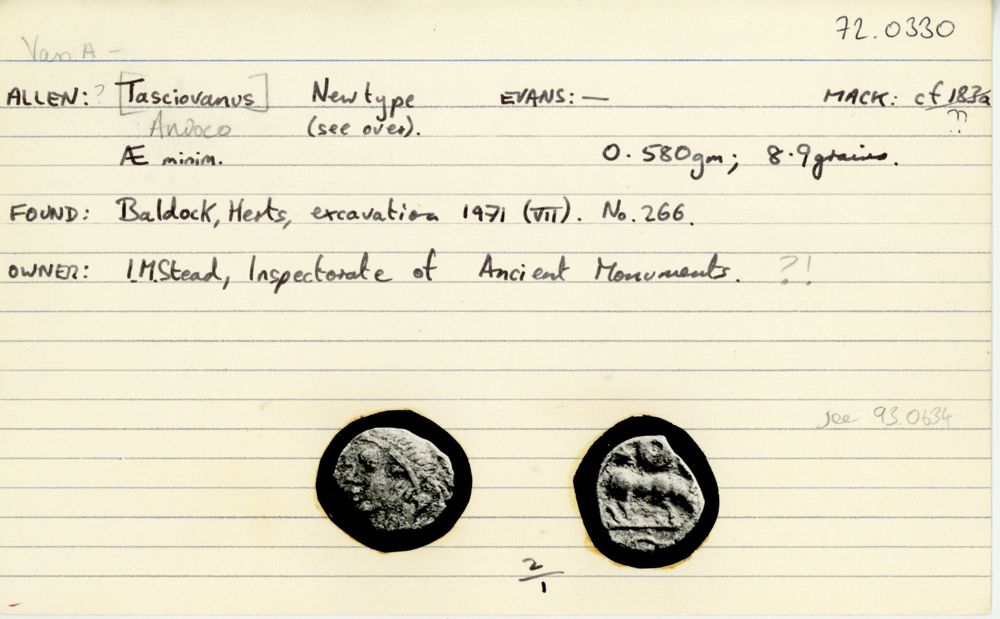 72.0330
Van. A –
ALLEN: ? [Tasciovanus] New type EVANS: — MACK: cf 183a
Andoco (see over). ??
Æ minim. 0.580gm; 8.9grains.
FOUND: Baldock, Herts, excavation 1971 (VII). No. 266.
OWNER: I.M.Stead, Inspectorate of Ancient Monuments. ?!
see 93.0634
2/1